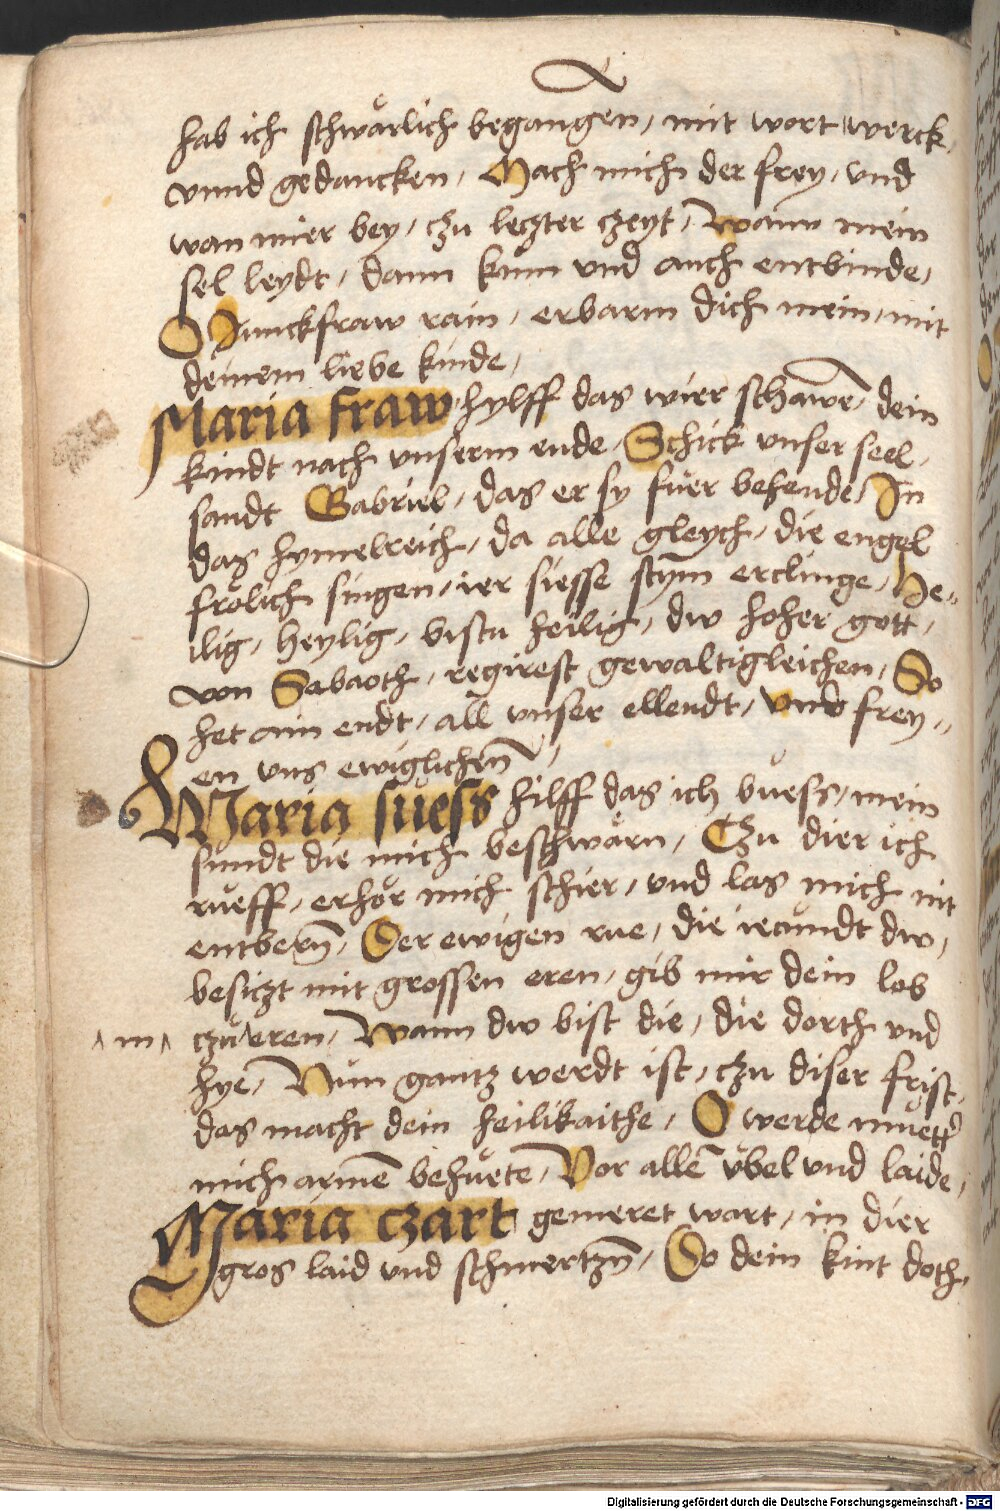 hab ich schwärlich begangen, mit wort werck,
vnnd gedancken, Mach mich der frey, vnd
won mier bey, czu leczter czeyt, Wann mein
sel leydt, dann kum vnd auch entbinde,
O Junckfraw rain, erbarm dich mein, mit
deinem liebe kinde,
Maria fraw hylff das wier schawē, dein
kindt nach vnserm ende, Schick vnser seel,
sandt Gabriel, das er sy füer behende, In
das hymelreich, da alle gleych, die engel
frölich singen, ier siesse stym erclinge, He-
ilig, heylig, bistu heilig, dw hoher gott,
von Sabaoth, regirest gewaltigleichen, So
het ain endt, all vnser ellendt, vnd frey-
en vns ewiglichenn,
Maria süess hilff das ich buess, mein
sundt die mich beschwärn, Czu dier ich
rueff, erhör mich schier, vnd las mich nit
entbern, Der ewigen rue, die iecundt dw,
besiczt mit grossen eren, gib mir dein lob
m czu eren, Wann dw bist die, die dorth vnd
hye, Nun gantz werdt ist, czu diser frist,
das macht dein heilikaithe, O werde muett
mich armē behuete, Vor allē übel vnd laide,
Maria czart gemeret wart, in dier
gros laid vnd schmertzn, So dein kint doth,
Digitalisierung gefördert durch die Deutsche Forschungsgemeinschaft - DFG